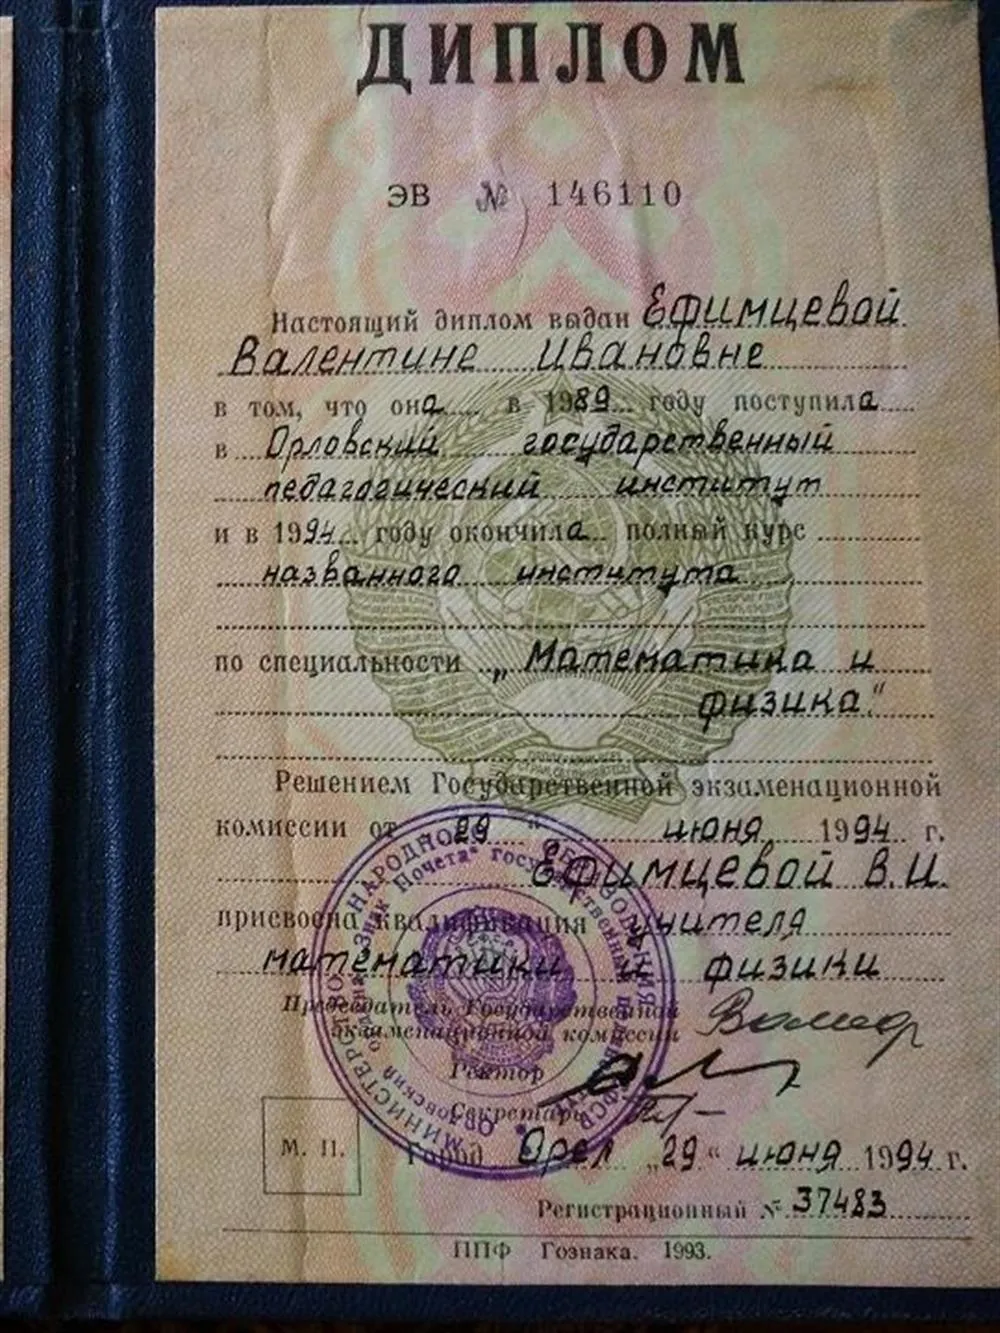 ДИПЛОМ
ЭВ № 146110
Настоящий диплом выдан Ефимцевой
Валентине Ивановне
в том, что она в 1989 году поступила
в Орловский государственный
педагогический институт
и в 1994 году окончила полный курс
названного института
по специальности „Математика и
физика"
Решением Государственной экзаменационной
комиссии от „29" июня 1994 г.
Ефимцевой В.И.
присвоена квалификация учителя
математики и физики
Председатель Государственной
экзаменационной комиссии
Ректор
Секретарь
М. П.
Город Орел „29" июня 1994 г.
Регистрационный № 37483
ППФ Гознака. 1993.
МИНИСТЕРСТВО НАРОДНОГО ОБРАЗОВАНИЯ РСФСР
Орловский ордена „Знак Почета" государственный